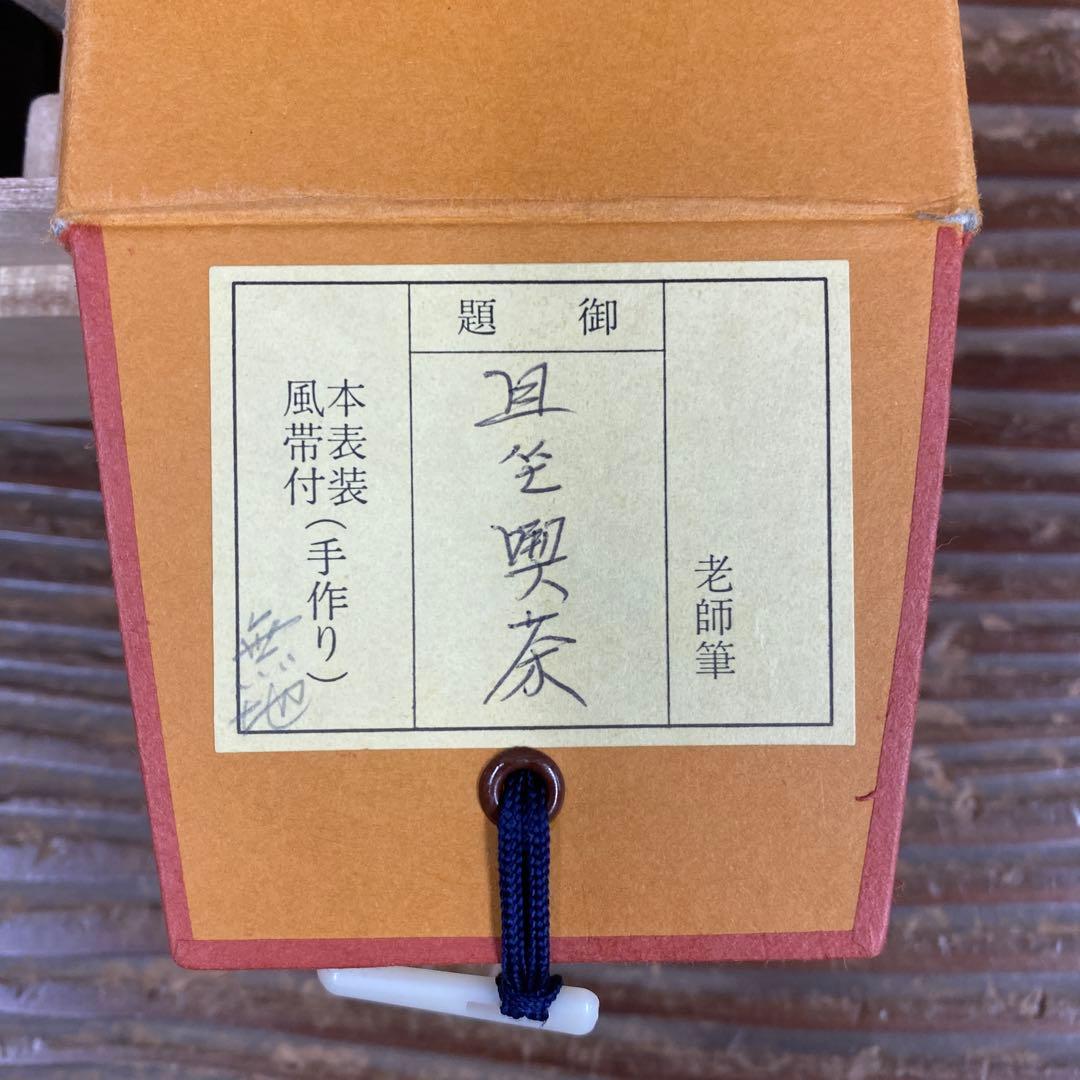 老師筆
御題
且坐喫茶
本表装
風帯付(手作り)
無地